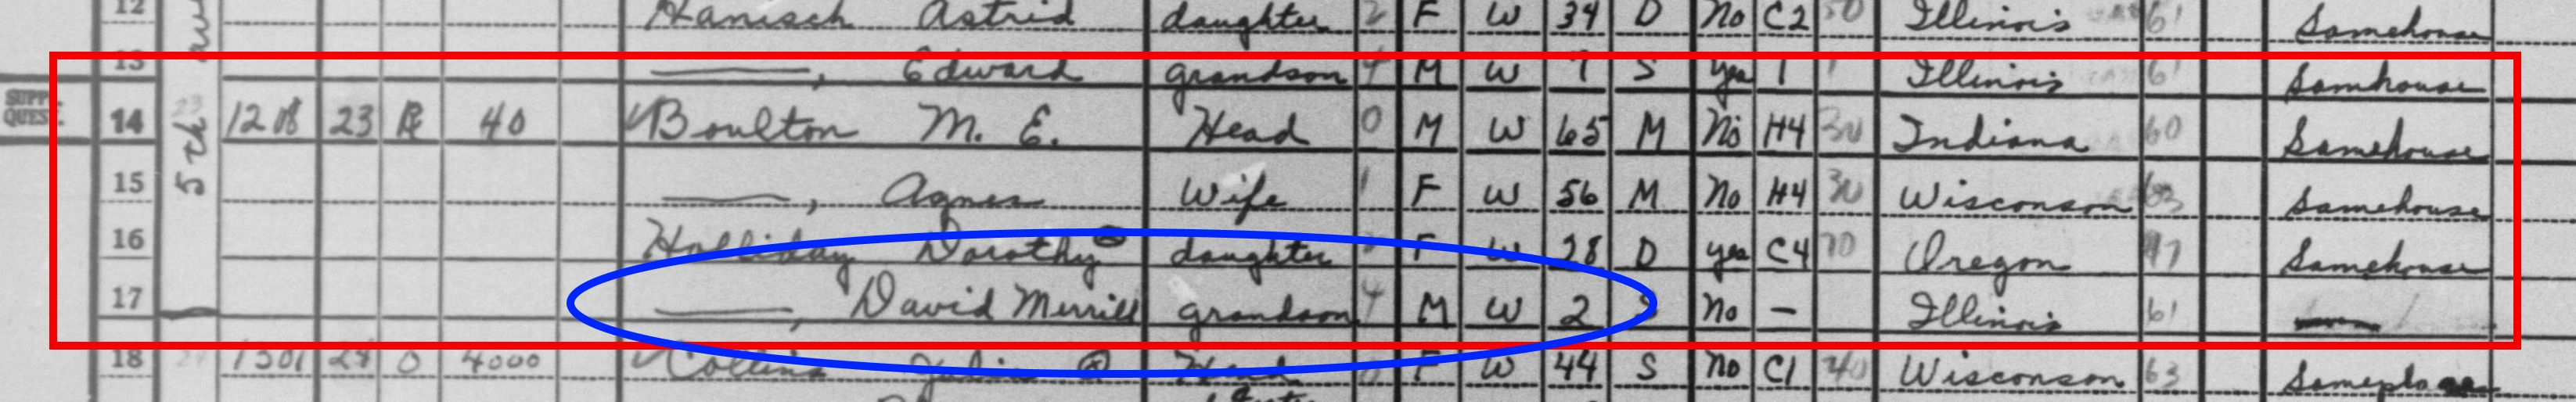 12 Hanisch Astrid daughter 2 F W 34 D No C2 30 Illinois 61 Samehouse
13 ——, Edward grandson 4 M W 7 S yes 1 1 Illinois 61 Samhouse
SUPP. QUEST. 14 5th 23 1208 23 R 40 Boulton M. E. Head 0 M W 65 M No H4 30 Indiana 60 Samehouse
15 ——, Agnes Wife 1 F W 56 M No H4 30 Wisconson 63 Samehouse
16 Holliday Dorothy daughter 2 F W 28 D yes C4 70 Oregon 97 Samehouse
17 ——, David Merrill grandson 4 M W 2 S No — Illinois 61
18 24 1301 24 O 4000 Collins Head 0 F W 44 S No C1 40 Wisconson 63 Sameplace